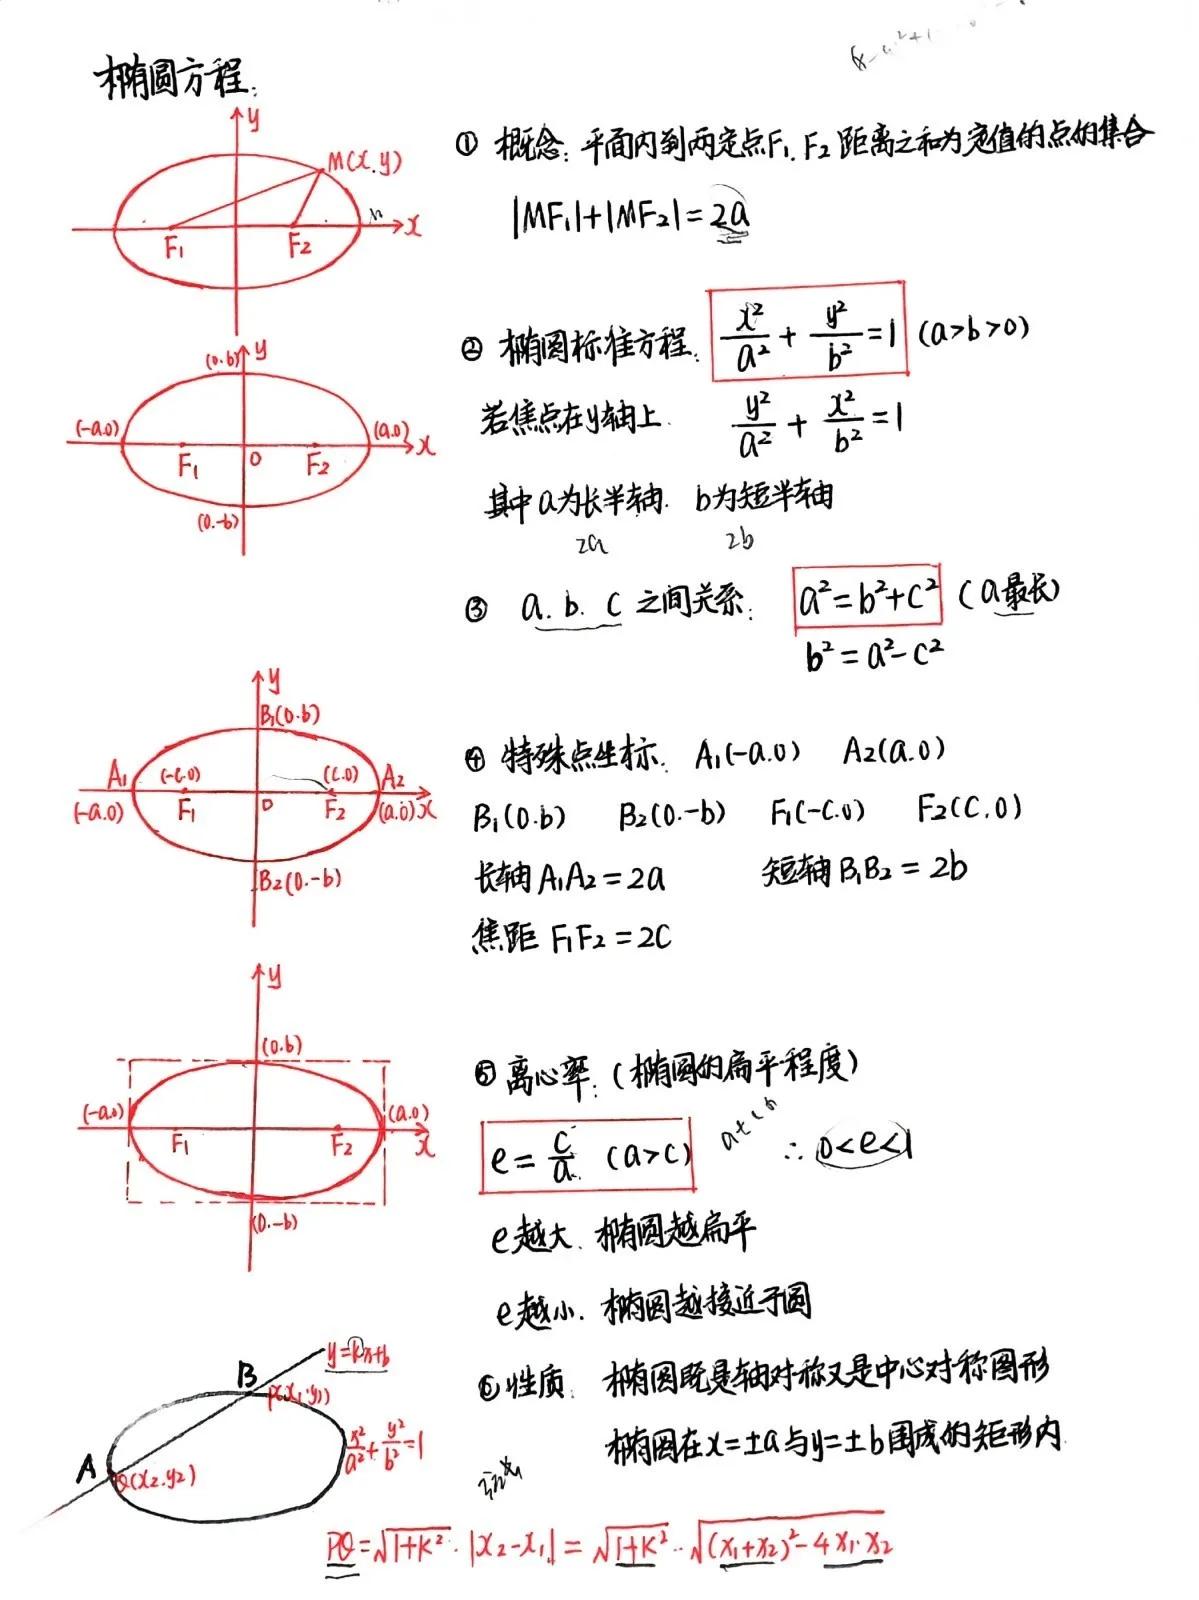 椭圆方程:
y
M(x.y)
F₁ F₂ x
① 概念: 平面内到两定点F₁.F₂距离之和为定值的点的集合
|MF₁|+|MF₂|=2a
(0.b) y
(-a.0) (a.0) x
F₁ 0 F₂
(0.-b)
② 椭圆标准方程: x²/a² + y²/b² = 1 (a>b>0)
若焦点在y轴上. y²/a² + x²/b² = 1
其中a为长半轴. b为短半轴
2a 2b
③ a. b. c 之间关系: a²=b²+c² (a最长)
b²=a²-c²
y
B₁(0.b)
A₁ (-c.0) (c.0) A₂
(-a.0) F₁ 0 F₂ (a.0) x
B₂(0.-b)
④ 特殊点坐标: A₁(-a.0) A₂(a.0)
B₁(0.b) B₂(0.-b) F₁(-c.0) F₂(c.0)
长轴A₁A₂=2a 短轴B₁B₂=2b
焦距 F₁F₂=2c
y
(0.b)
(-a.0) (a.0)
F₁ F₂ x
(0.-b)
⑤ 离心率: (椭圆的扁平程度)
e=c/a. (a>c) ∴ 0<e<1
e越大. 椭圆越扁平
e越小. 椭圆越接近于圆
y=kx+b
B
P(x₁.y₁)
x²/a² + y²/b² = 1
A
Q(x₂.y₂)
⑥性质: 椭圆既是轴对称又是中心对称图形
椭圆在x=±a与y=±b围成的矩形内.
PQ=√(1+k²)·|x₂-x₁|=√(1+k²)·√((x₁+x₂)²-4x₁·x₂)